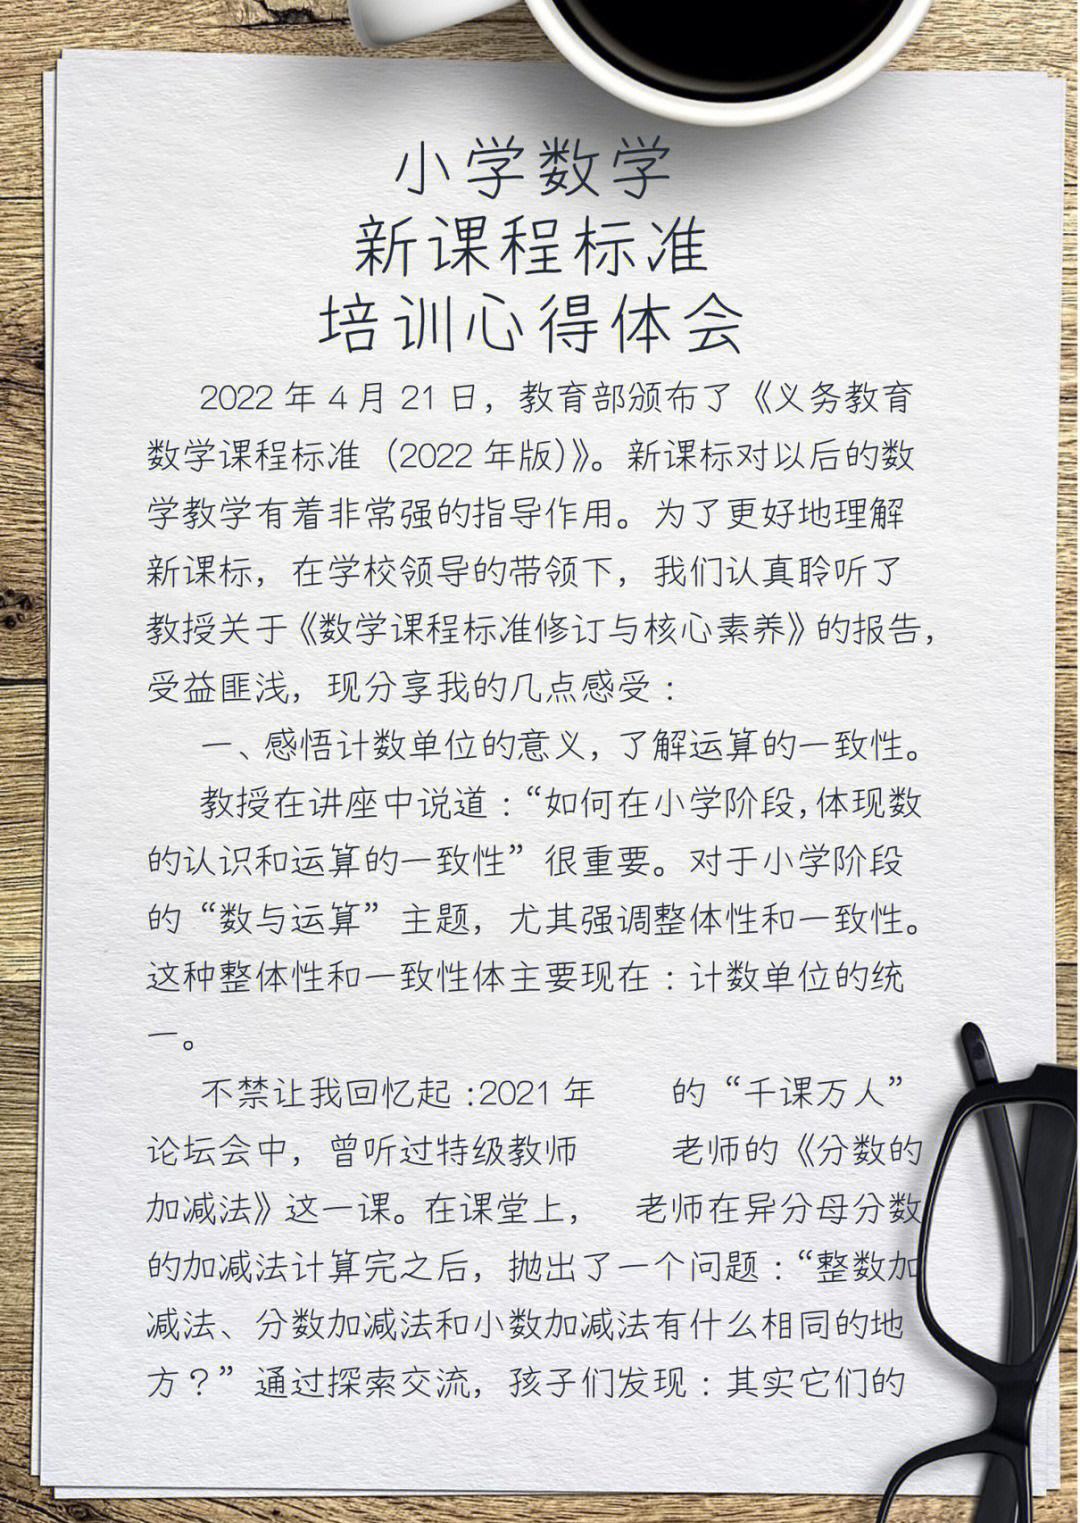 小学数学
新课程标准
培训心得体会
2022 年 4 月 21 日，教育部颁布了《义务教育
数学课程标准（2022 年版）》。新课标对以后的数
学教学有着非常强的指导作用。为了更好地理解
新课标，在学校领导的带领下，我们认真聆听了
教授关于《数学课程标准修订与核心素养》的报告，
受益匪浅，现分享我的几点感受：
一、感悟计数单位的意义，了解运算的一致性。
教授在讲座中说道：“如何在小学阶段，体现数
的认识和运算的一致性”很重要。对于小学阶段
的“数与运算”主题，尤其强调整体性和一致性。
这种整体性和一致性体主要现在：计数单位的统
一。
不禁让我回忆起：2021 年 的“千课万人”
论坛会中，曾听过特级教师 老师的《分数的
加减法》这一课。在课堂上， 老师在异分母分数
的加减法计算完之后，抛出了一个问题：“整数加
减法、分数加减法和小数加减法有什么相同的地
方？”通过探索交流，孩子们发现：其实它们的